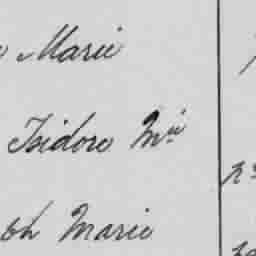 Marie
Isidore Mie
ph Marie